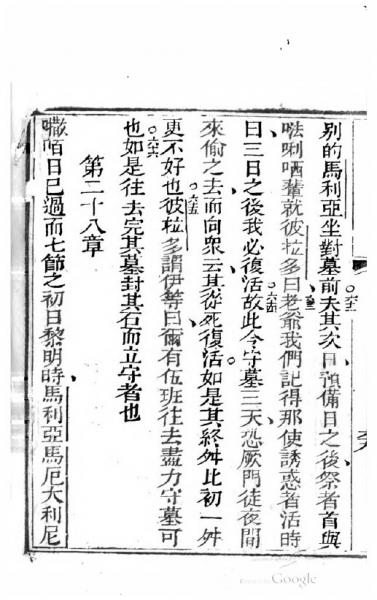 別的馬利亞坐對墓前夫其次日預備日之後祭者首與
𠵽唎哂輩就彼拉多曰老爺我們記得那使誘惑者活時
曰三日之後我必復活故此令守墓三天恐厥門徒夜間
來偷之去而向眾云其從死復活如是其終舛比初一舛
更不好也彼拉多謂伊等曰爾有伍班往去盡力守墓可
也如是往去完其墓封其石而立守者也
第二十八章
𠹌咟日已過而七節之初日黎明時馬利亞馬厄大利尼
Google